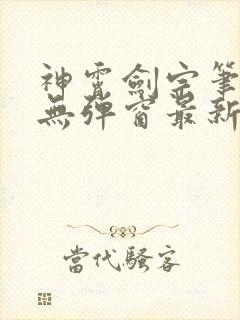 神霄劍宗筆
無彈窗最新
當代騷客